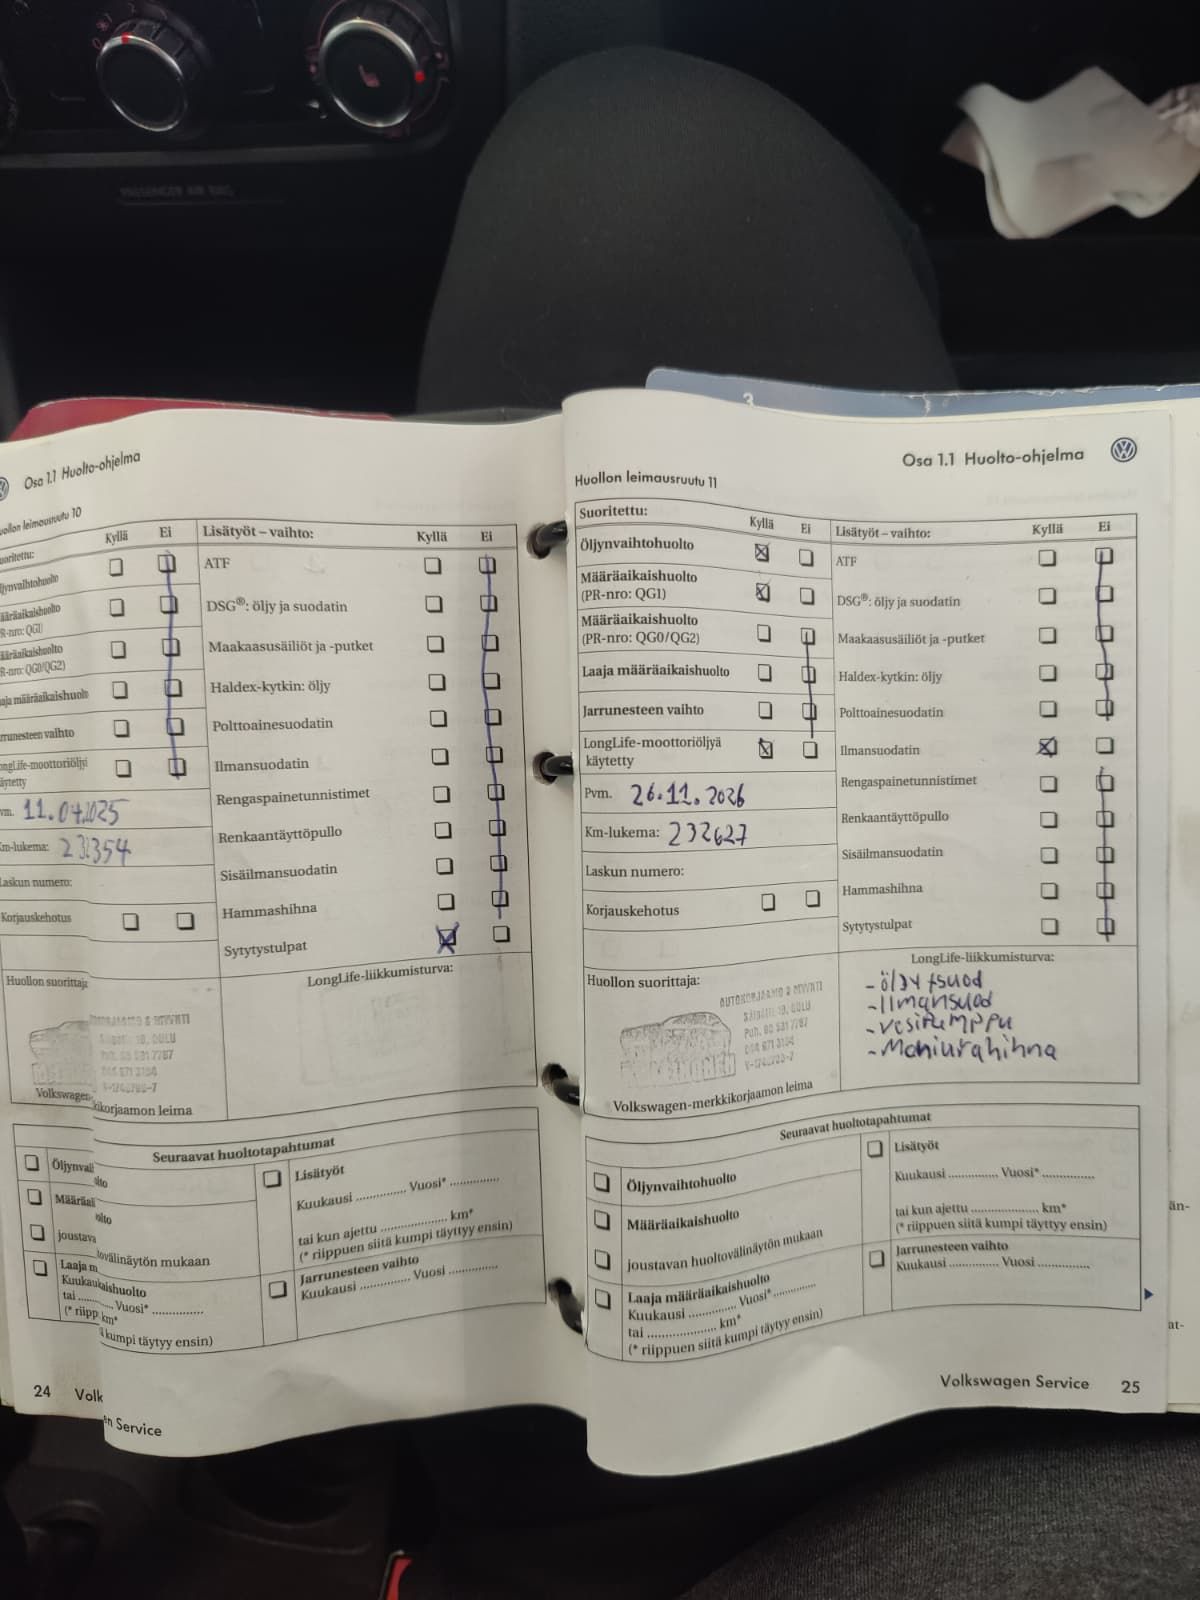 PASSENGER AIR BAG
3
Osa 1.1 Huolto-ohjelma
Huollon leimausruutu 10
Suoritettu:
Kyllä
Ei
Lisätyöt – vaihto:
Kyllä
Ei
ATF
DSG®: öljy ja suodatin
Maakaasusäiliöt ja -putket
Haldex-kytkin: öljy
Jarrunesteen vaihto
Polttoainesuodatin
Ilmansuodatin
käytetty
Rengaspainetunnistimet
11.04.2025
Renkaantäyttöpullo
Km-lukema:
Sisäilmansuodatin
Laskun numero:
Hammashihna
Korjauskehotus
Sytytystulpat
Huollon suorittaja
LongLife-liikkumisturva:
Volkswagen-
kikorjaamon leima
Seuraavat huoltotapahtumat
Öljynvai
lto
Lisätyöt
Kuukausi .............. Vuosi* ..............
Määräai
olto
joustava
tovälinäytön mukaan
tai kun ajettu .................... km*
(* riippuen siitä kumpi täyttyy ensin)
Laaja m
kaishuolto
Kuukau
Jarrunesteen vaihto
Kuukausi .............. Vuosi ..............
tai
Vuosi* ..............
(* riipp
km*
kumpi täytyy ensin)
24 Volk
en Service
Osa 1.1 Huolto-ohjelma
Huollon leimausruutu 11
Suoritettu:
Kyllä
Ei
Lisätyöt – vaihto:
Kyllä
Ei
Öljynvaihtohuolto
ATF
Määräaikaishuolto
(PR-nro: QG1)
DSG®: öljy ja suodatin
Määräaikaishuolto
(PR-nro: QG0/QG2)
Maakaasusäiliöt ja -putket
Laaja määräaikaishuolto
Haldex-kytkin: öljy
Jarrunesteen vaihto
Polttoainesuodatin
LongLife-moottoriöljyä
käytetty
Ilmansuodatin
Pvm. 26.11.2026
Rengaspainetunnistimet
Km-lukema: 232627
Renkaantäyttöpullo
Laskun numero:
Sisäilmansuodatin
Korjauskehotus
Hammashihna
Sytytystulpat
Huollon suorittaja:
LongLife-liikkumisturva:
- öljy + suod
- Ilmansuod
- vesipumppu
- Moniurahihna
Volkswagen-merkkikorjaamon leima
Seuraavat huoltotapahtumat
Öljynvaihtohuolto
Lisätyöt
Kuukausi .............. Vuosi* ..............
Määräaikaishuolto
joustavan huoltovälinäytön mukaan
tai kun ajettu .................... km*
(* riippuen siitä kumpi täyttyy ensin)
Laaja määräaikaishuolto
Kuukausi .............. Vuosi* ..............
tai .................... km*
(* riippuen siitä kumpi täytyy ensin)
Jarrunesteen vaihto
Kuukausi .............. Vuosi ..............
Volkswagen Service 25
än-
at-